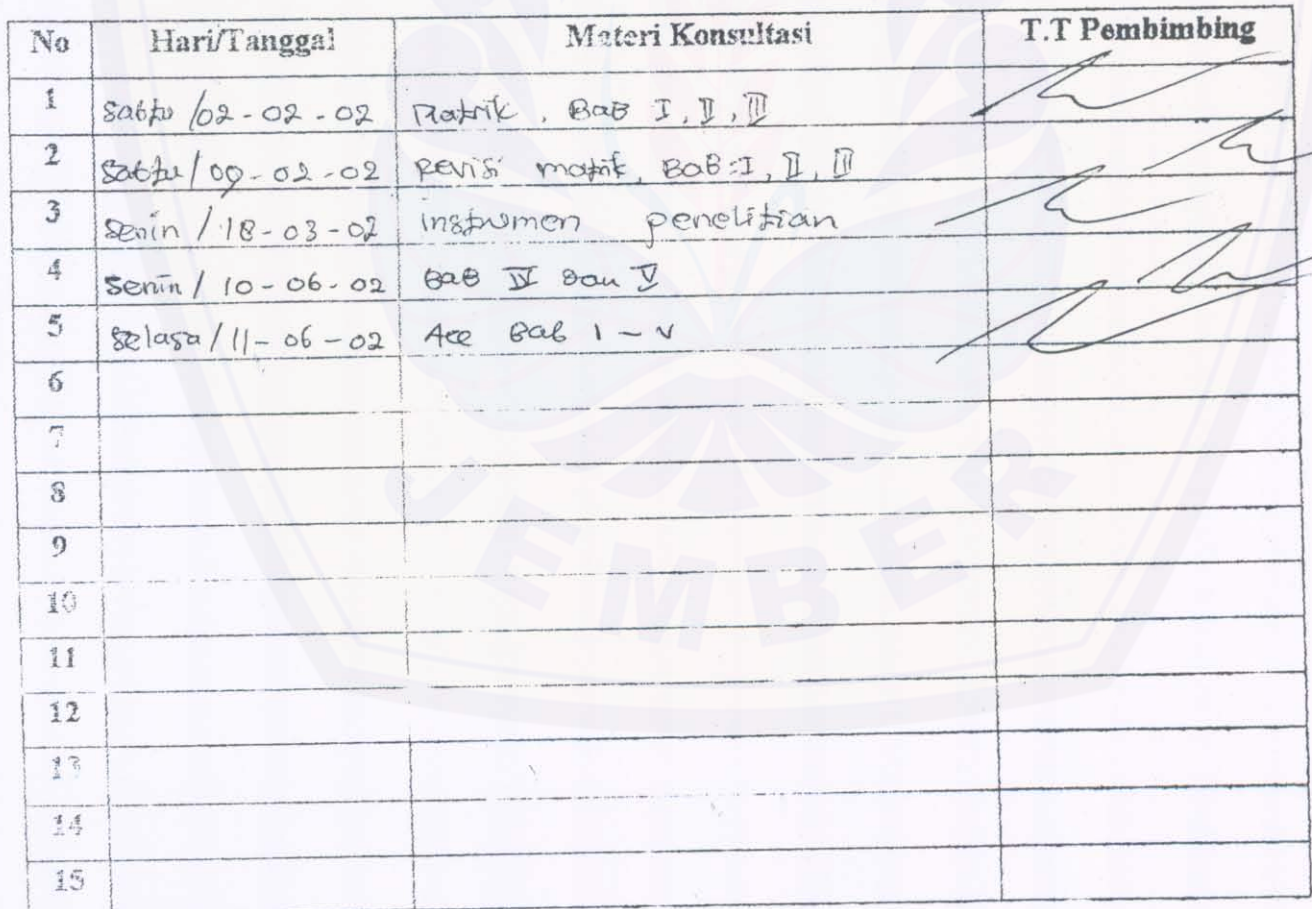 No Hari/Tanggal Materi Konsultasi T.T Pembimbing
1 Sabtu / 02 - 02 - 02 Matrik, BaB I, II, III
2 Sabtu / 09 - 02 - 02 Revisi matrik, BaB : I, II, III
3 Senin / 18 - 03 - 02 instrumen penelitian
4 Senin / 10 - 06 - 02 BaB IV dan V
5 Selasa / 11 - 06 - 02 Acc Bab I - V
6
7
8
9
10
11
12
13
14
15
JEMBER